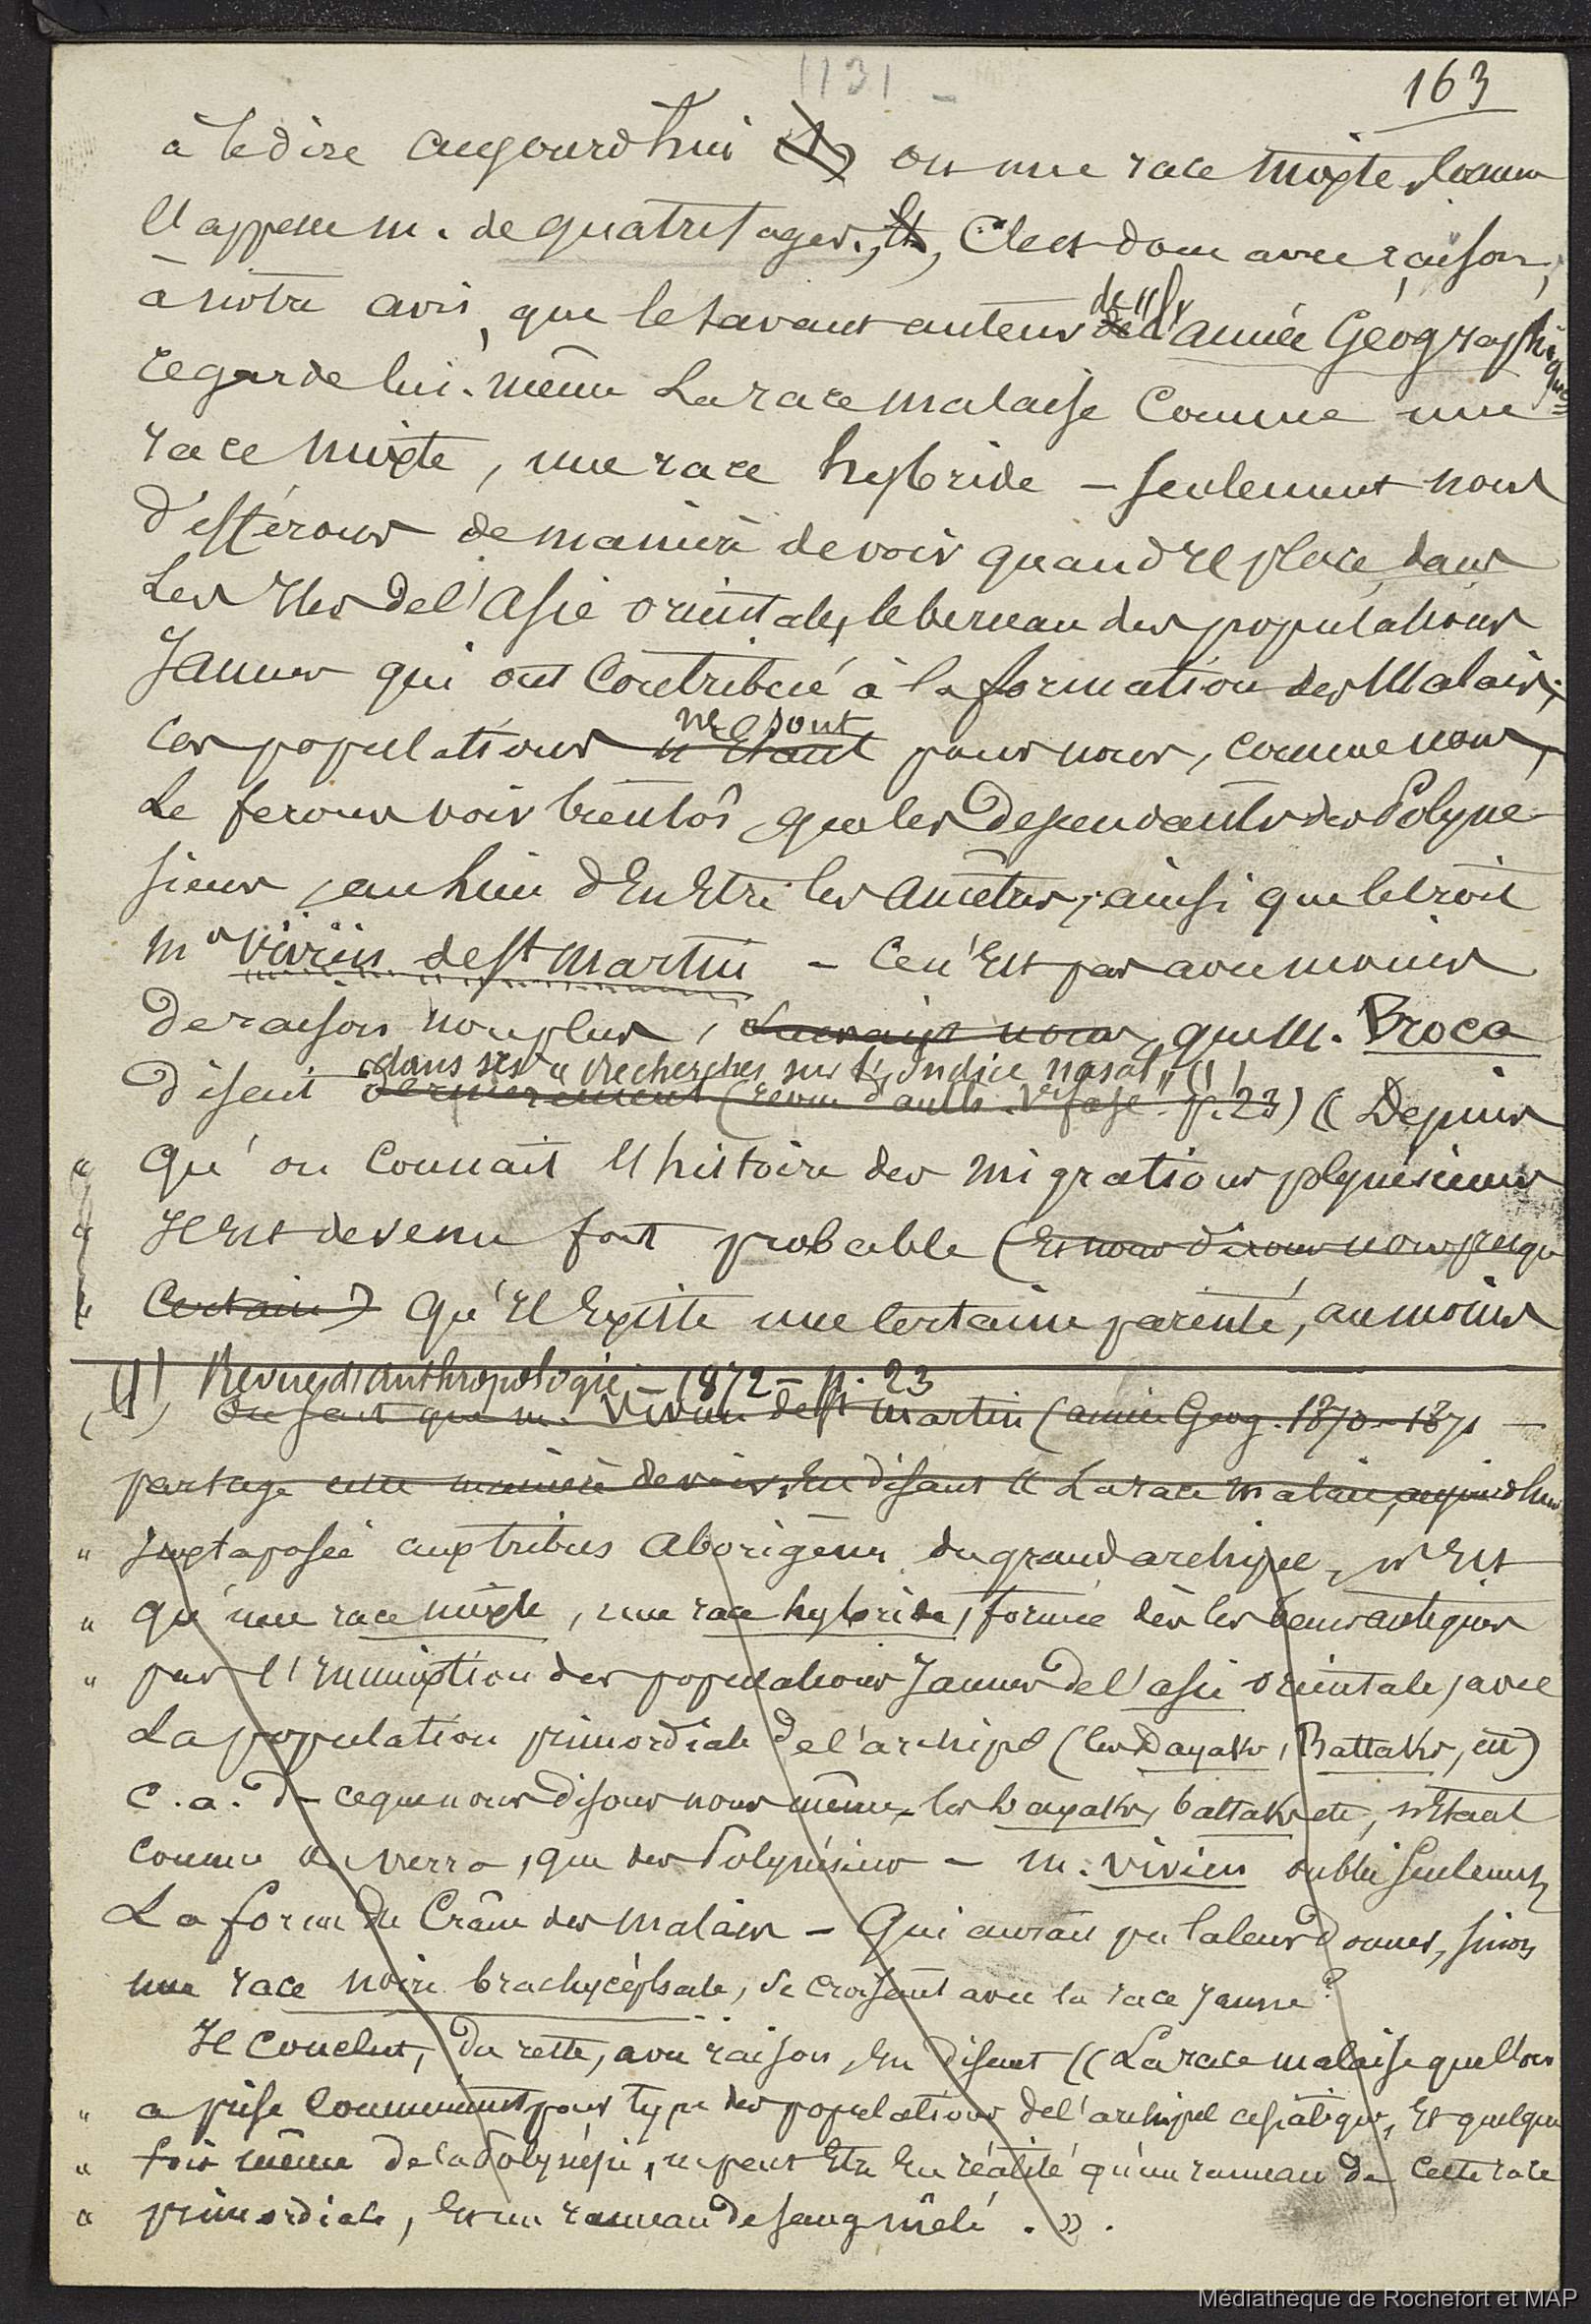 1131 -
163
à le dire aujourd'hui est une race mixte, comme
l'appelle m. de quatrefages. C'est donc avec raison,
à notre avis, que le savant auteur de "l'année Géographique"
regarde lui-même la race malaise comme une
race mixte, une race hybride - seulement nous
différons de manière de voir quand il place, dans
les îles de l'Asie orientale, le berceau des populations
Jaunes qui ont contribué à la formation des Malais;
ne sont
ces populations n'étant pour nous, comme nous
le ferons voir bientôt, que les descendants des Polyné-
siens, au lieu d'en être les ancêtres, ainsi que le croit
Mr Vivien de St Martin - Ce n'est pas avec moins
de raison non plus, que M. Broca
dans ses "Recherches sur l'indice nasal" (1)
disait dernièrement (revue d'anth. 1er fasc. p. 23) « Depuis
" qu'on connait l'histoire des migrations polynésiennes
" il est devenu fort probable (et nous dirons nous presque
" certain) qu'il existe une certaine parenté, au moins
(1) Revue d'anthropologie - 1872 - p. 23
(1) On sait que m. Vivien de St Martin (année Géog. 1870-1871
partage cette manière de voir, en disant « La race malaie, aujourd'hui
" juxtaposée aux tribus aborigènes du grand archipel, n'est
" qu'une race mixte, une race hybride, formée dès les temps antiques
" par l'immixtion des populations Jaunes de l'asie orientale, avec
la population primordiale de l'archipel (les Dayaks, Battaks, etc)
c.a.d - ce que nous disons nous même, les Dayaks, battaks etc, n'étant
comme on verra, que des Polynésiens - m. Vivien oublie seulement
La forme du Crâne des malais - Qui aurait pu la leur donner, sinon
une race noire brachycéphale, se croisant avec la race jaune?
Il conclut, du reste, avec raison, en disant « La race malaise que l'on
" a prise communément pour type des populations de l'archipel asiatique, et quelque
" fois même de la Polynésie, ne peut être en réalité qu'un rameau de cette race
" primordiale, et un rameau de sang mêlé. ».
Médiathèque de Rochefort et MAP